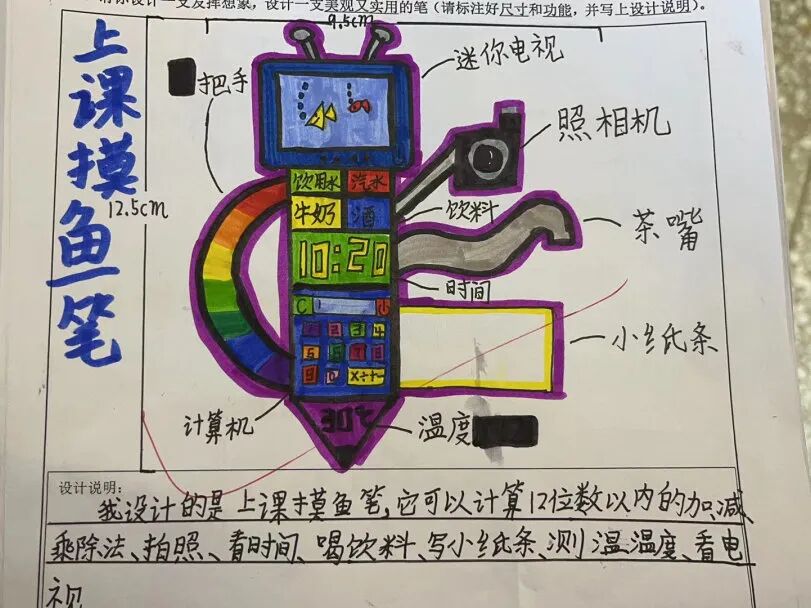 请你设计一支发挥想象，设计一支美观又实用的笔（请标注好尺寸和功能，并写上设计说明）。
9.5cm
上课摸鱼笔
12.5cm
把手
迷你电视
照相机
饮用水 汽水
牛奶 酒
饮料
茶嘴
10:20
时间
小纸条
C 1
1 2 3 4
5 6 7 8
9 0 X÷+-
计算机
30℃
温度
设计说明：
我设计的是上课摸鱼笔,它可以计算12位数以内的加、减、
乘除法、拍照、看时间、喝饮料、写小纸条、测温温度、看电
视